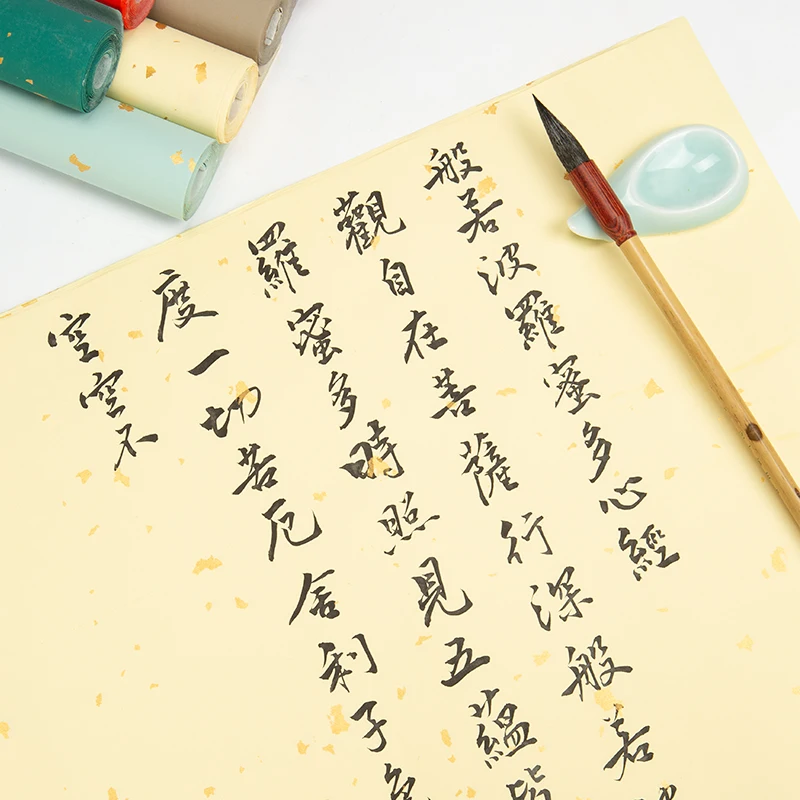 般若波羅蜜多心經
觀自在菩薩行深般若
羅蜜多時照見五蘊皆
度一切苦厄舍利子色
空空不